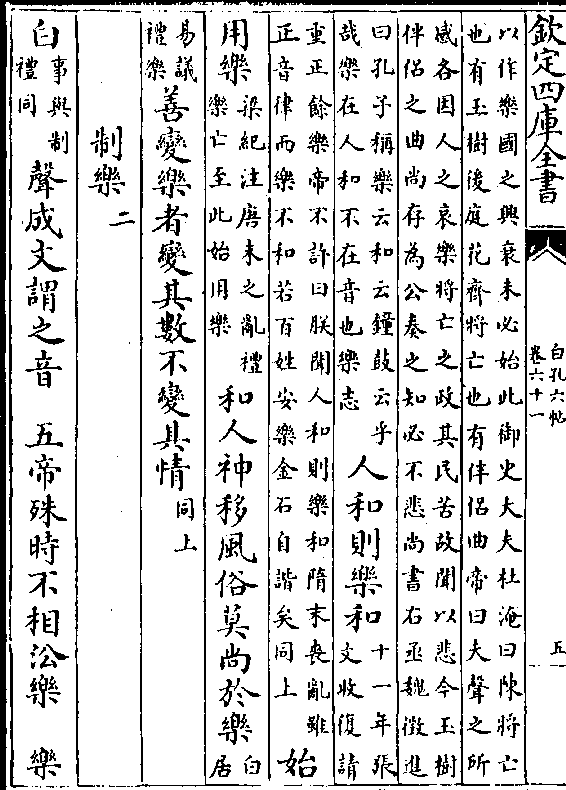 欽定四庫全書
白孔六帖
卷六十一
五
以作樂國之興衰未必始此御史大夫杜淹曰陳將亡
也有玉樹後庭花齊將亡也有伴侣曲帝曰夫聲之所
感各因人之哀樂將亡之政其民苦故聞以悲今玉樹
伴侣之曲尚存為公奏之知必不悲尚書右丞魏徵進
曰孔子稱樂云和云鐘鼓云乎
哉樂在人和不在音也樂志
人和則樂和
十一年張
文收復請
重正餘樂帝不許曰朕聞人和則樂和隋末喪亂雖
正音律而樂不和若百姓安樂金石自諧矣同上
始
用樂
梁紀注唐末之亂禮
樂亡至此始用樂
和人神移風俗莫尚於樂
白
居
易議
禮樂
善變樂者變其數不變其情
同上
制樂
二
白
事與制
禮同
聲成文謂之音 五帝殊時不相㳂樂 樂